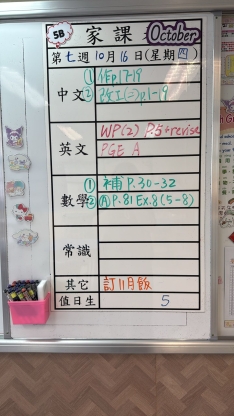 5B 家課 October
第七週 10月16日(星期四)
中文 ① 作 p17-19
② 改工(二) p1-9
英文 WP(2) P.5+revise
PGE A
數學 ① 補 P.30-32
② Ⓐ P.81 Ex.8(5-8)
常識
其它 訂11月飯
值日生 5